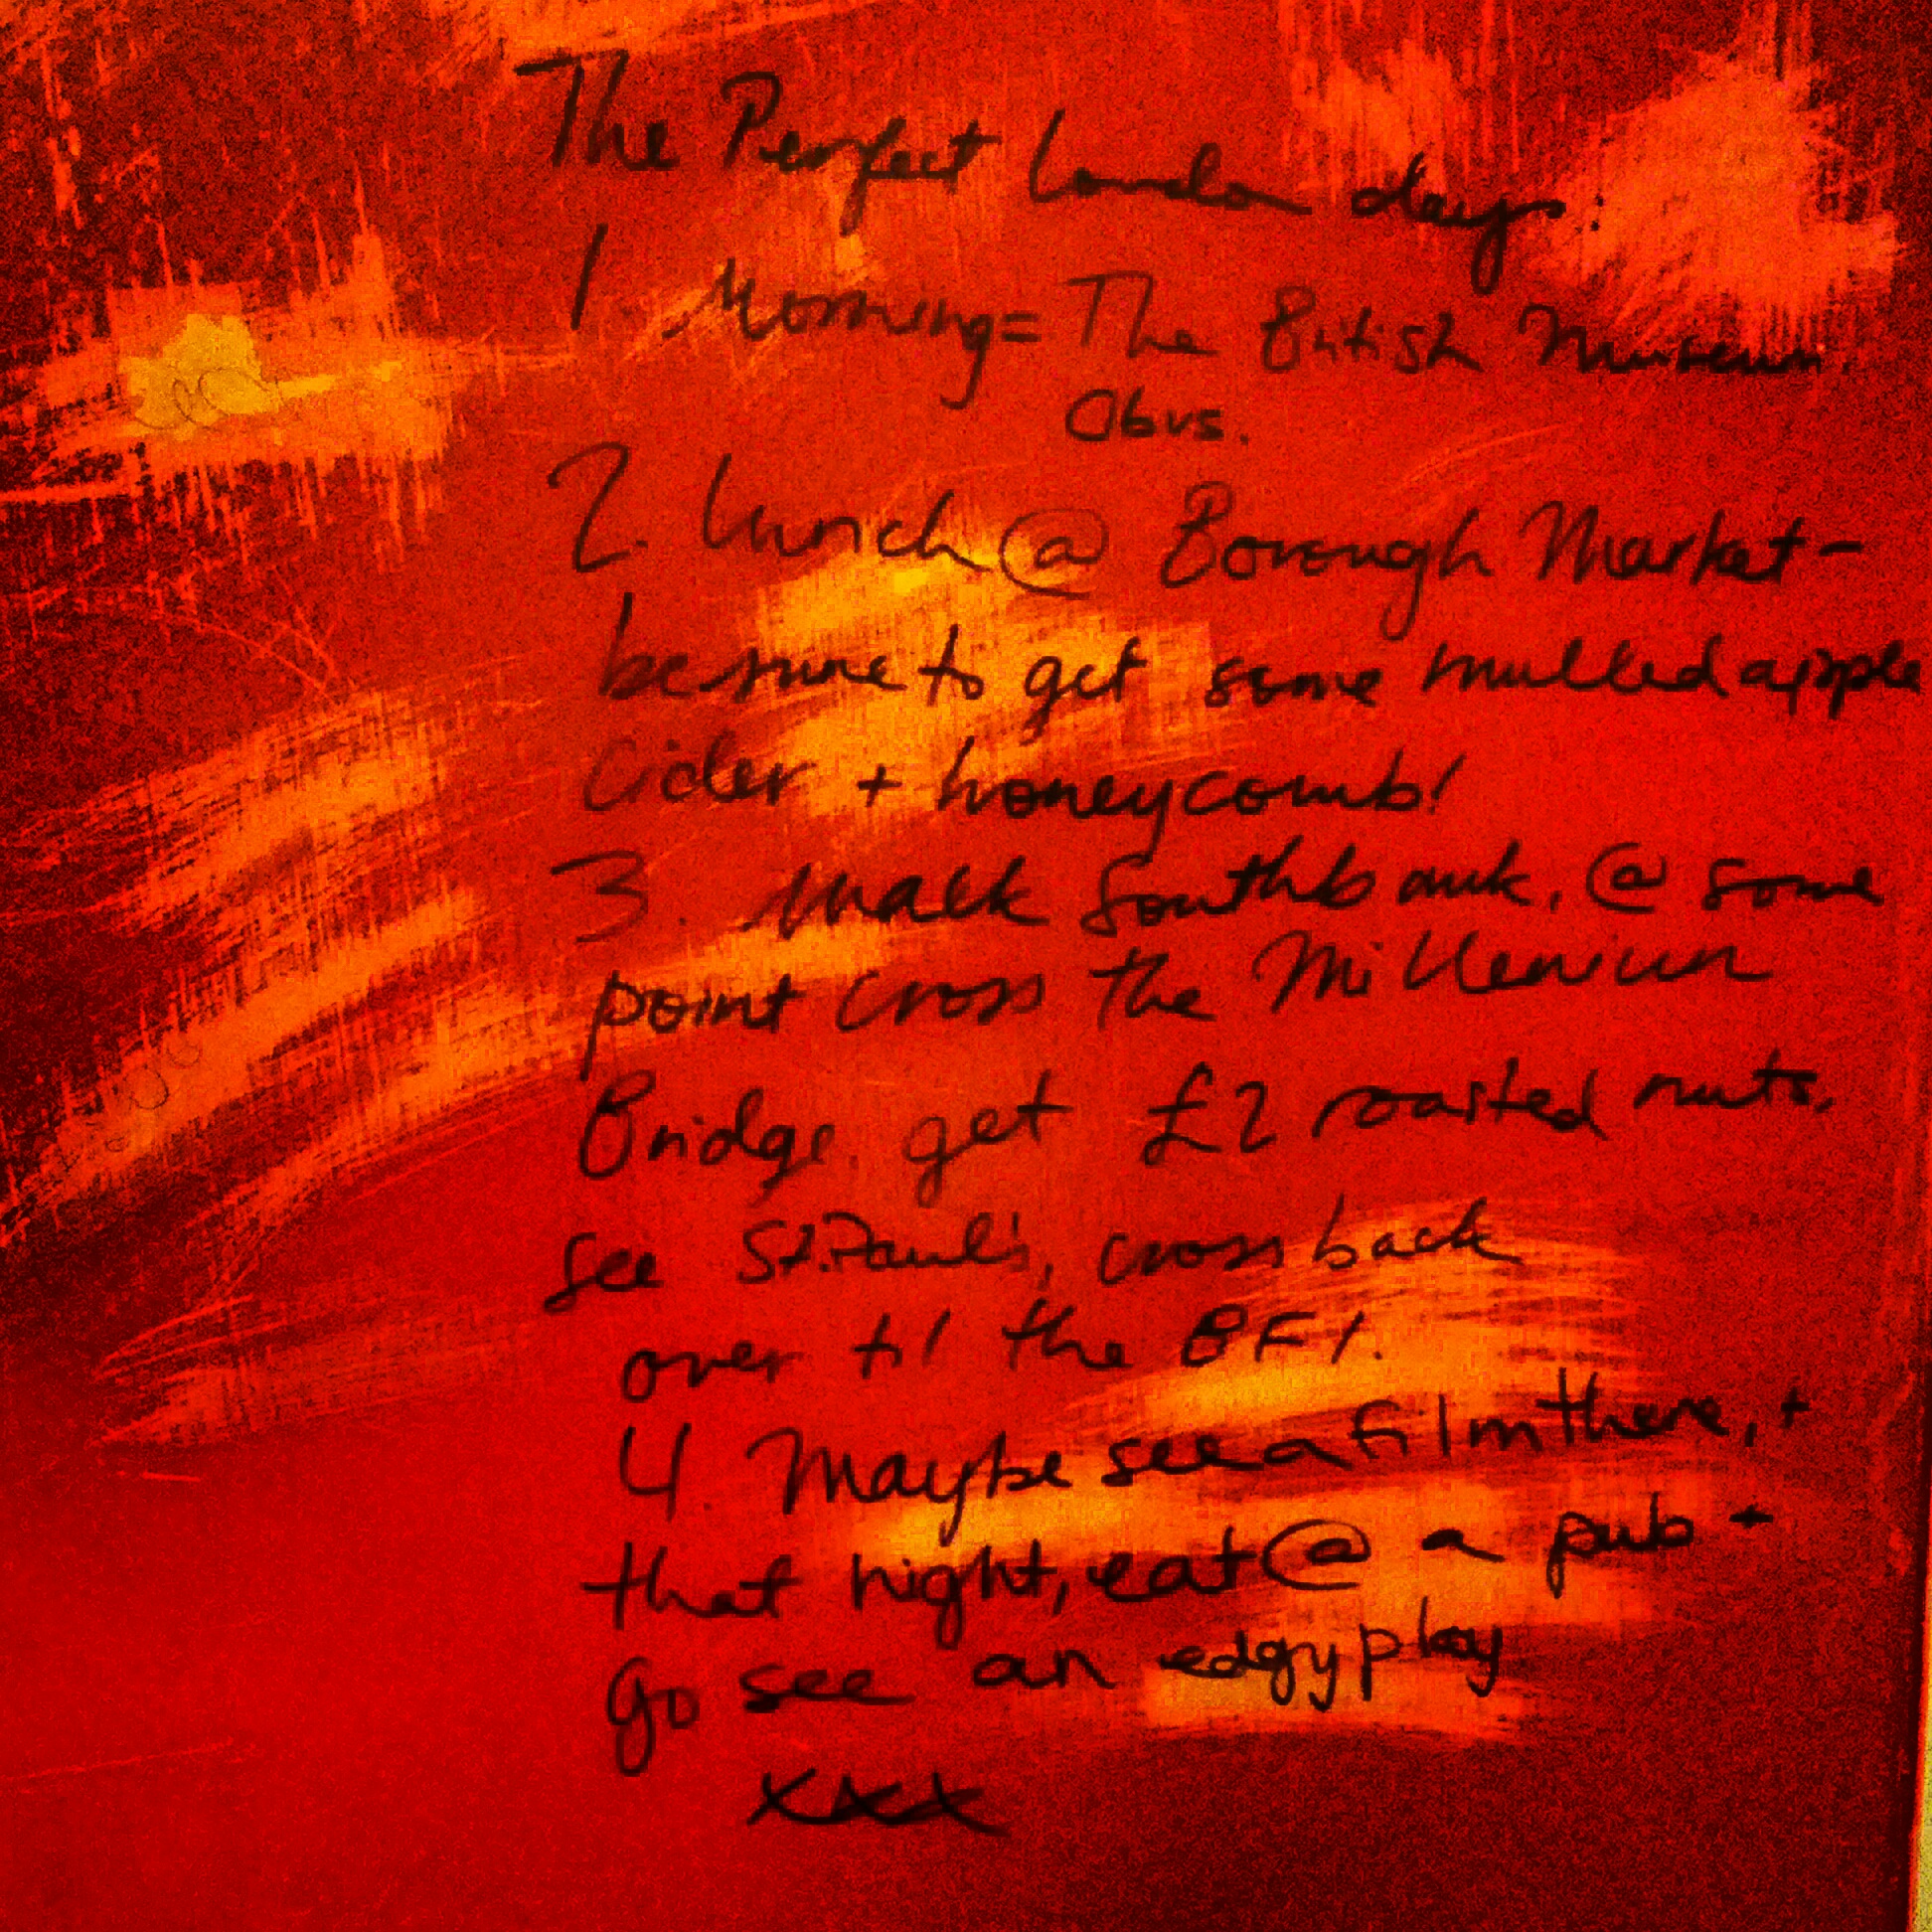 The Perfect London day:
1. Morning = The British Museum.
Obvs.
2. Lunch @ Borough Market -
be sure to get some mulled apple
cider + honeycomb!
3. Walk Southbank, @ some
point cross the Millenium
Bridge, get £2 roasted nuts,
see St. Paul's, cross back
over til the BFI.
4. Maybe see a film there, +
that night, eat @ a pub +
go see an edgy play
xxx